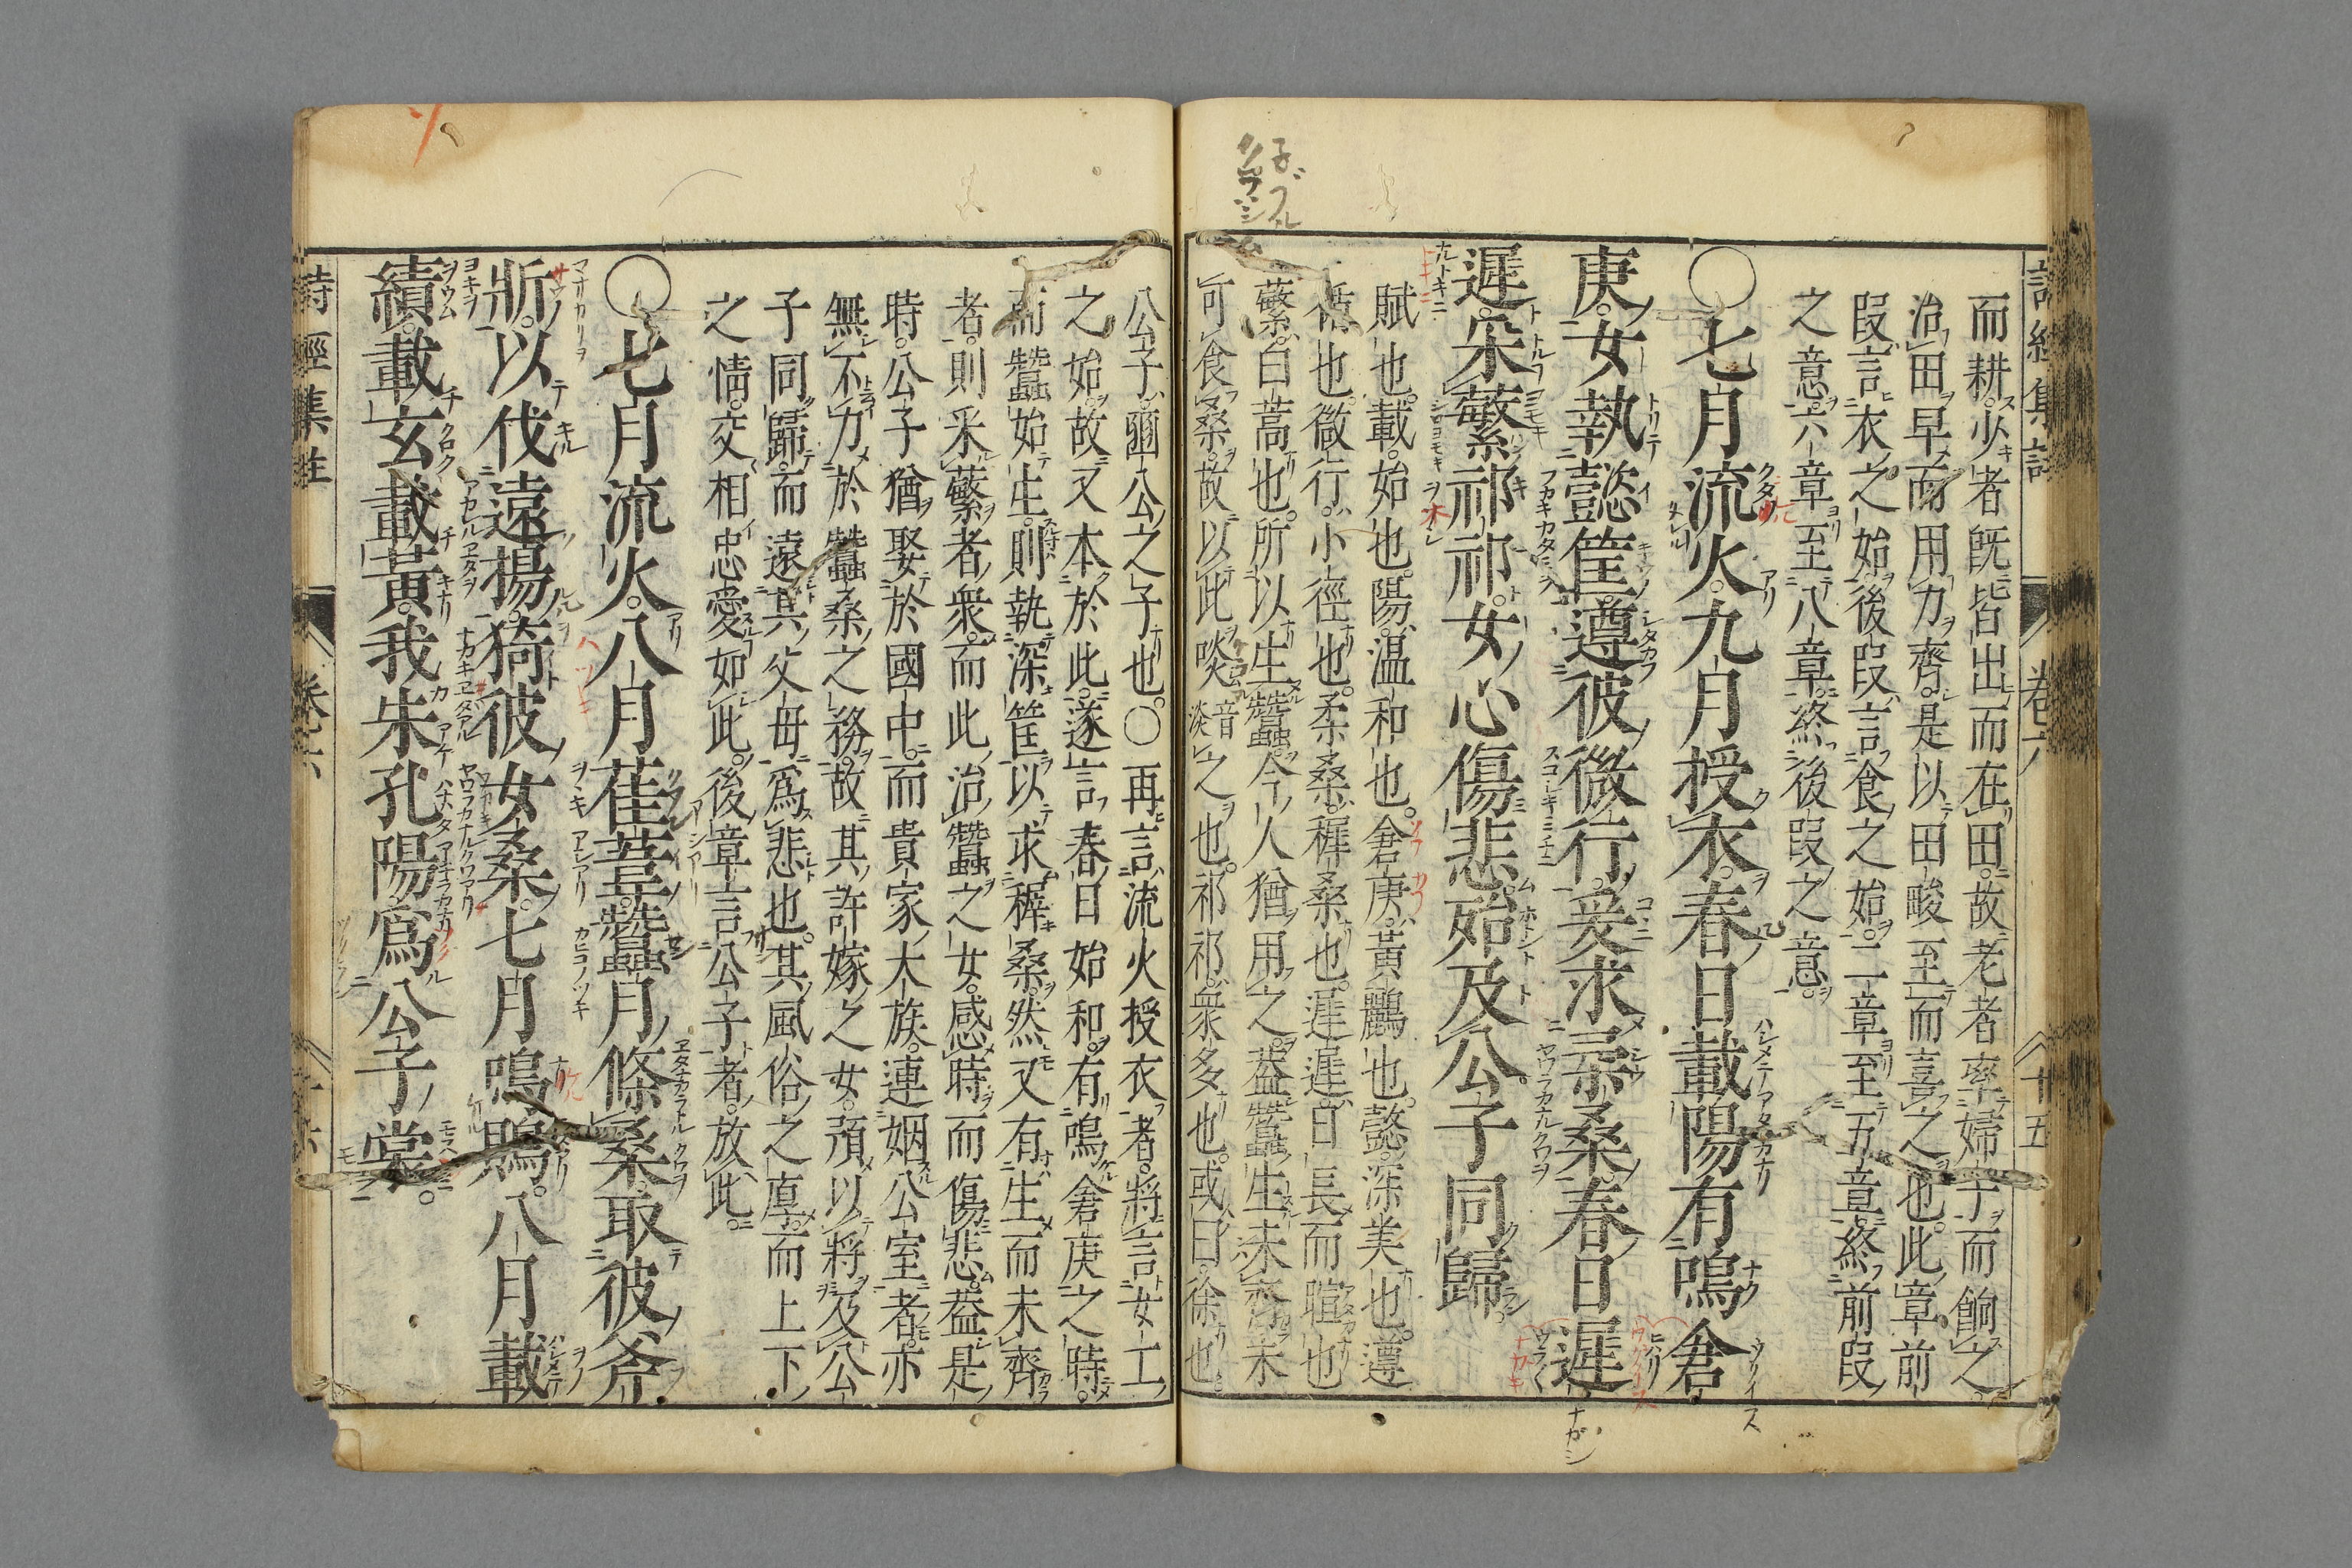 而耕。少者既皆出而在田。故老者率婦子而餉之。
治田早而用力齊。是以田畯至而喜之也。此章前
段言衣之始。後段言食之始。二章至五章。終前段
之意。六章至八章。終後段之意。
○七月流火。九月授衣。春日載陽。有鳴倉
庚。女執懿筐。遵彼微行。爰求柔桑。春日遲
遲。采蘩祁祁。女心傷悲。殆及公子同歸。
賦也。載。始也。陽。温和也。倉庚。黃鸝也。懿。深美也。遵
循也。微行。小徑也。柔桑。穉桑也。遲遲。日長而暄也
蘩。白蒿也。所以生蠶。今人猶用之。葢蠶生未齊。未
可食桑。故以此啖
音淡
之也。祁祁。衆多也。或曰。徐也。
公子。豳公之子也。○再言流火授衣者。將言女工
之始。故又本於此。遂言春日始和。有鳴倉庚之時。
而蠶始生。則執深筐以求穉桑。然又有生而未齊
者。則采蘩者衆。而此治蠶之女。感時而傷悲。葢是
時。公子猶娶於國中。而貴家大族。連姻公室者。亦
無不力於蠶桑之務。故其許嫁之女。預以將及公
子同歸。而遠其父母爲悲也。其風俗之厚。而上下
之情。交相忠愛如此。後章言公子者。放此。
○七月流火。八月萑葦。蠶月條桑。取彼斧
斨。以伐遠揚。猗彼女桑。七月鳴鵙。八月載
績。載玄載黃。我朱孔陽。爲公子裳。
詩經集註
卷六
十五
詩經集註
卷六